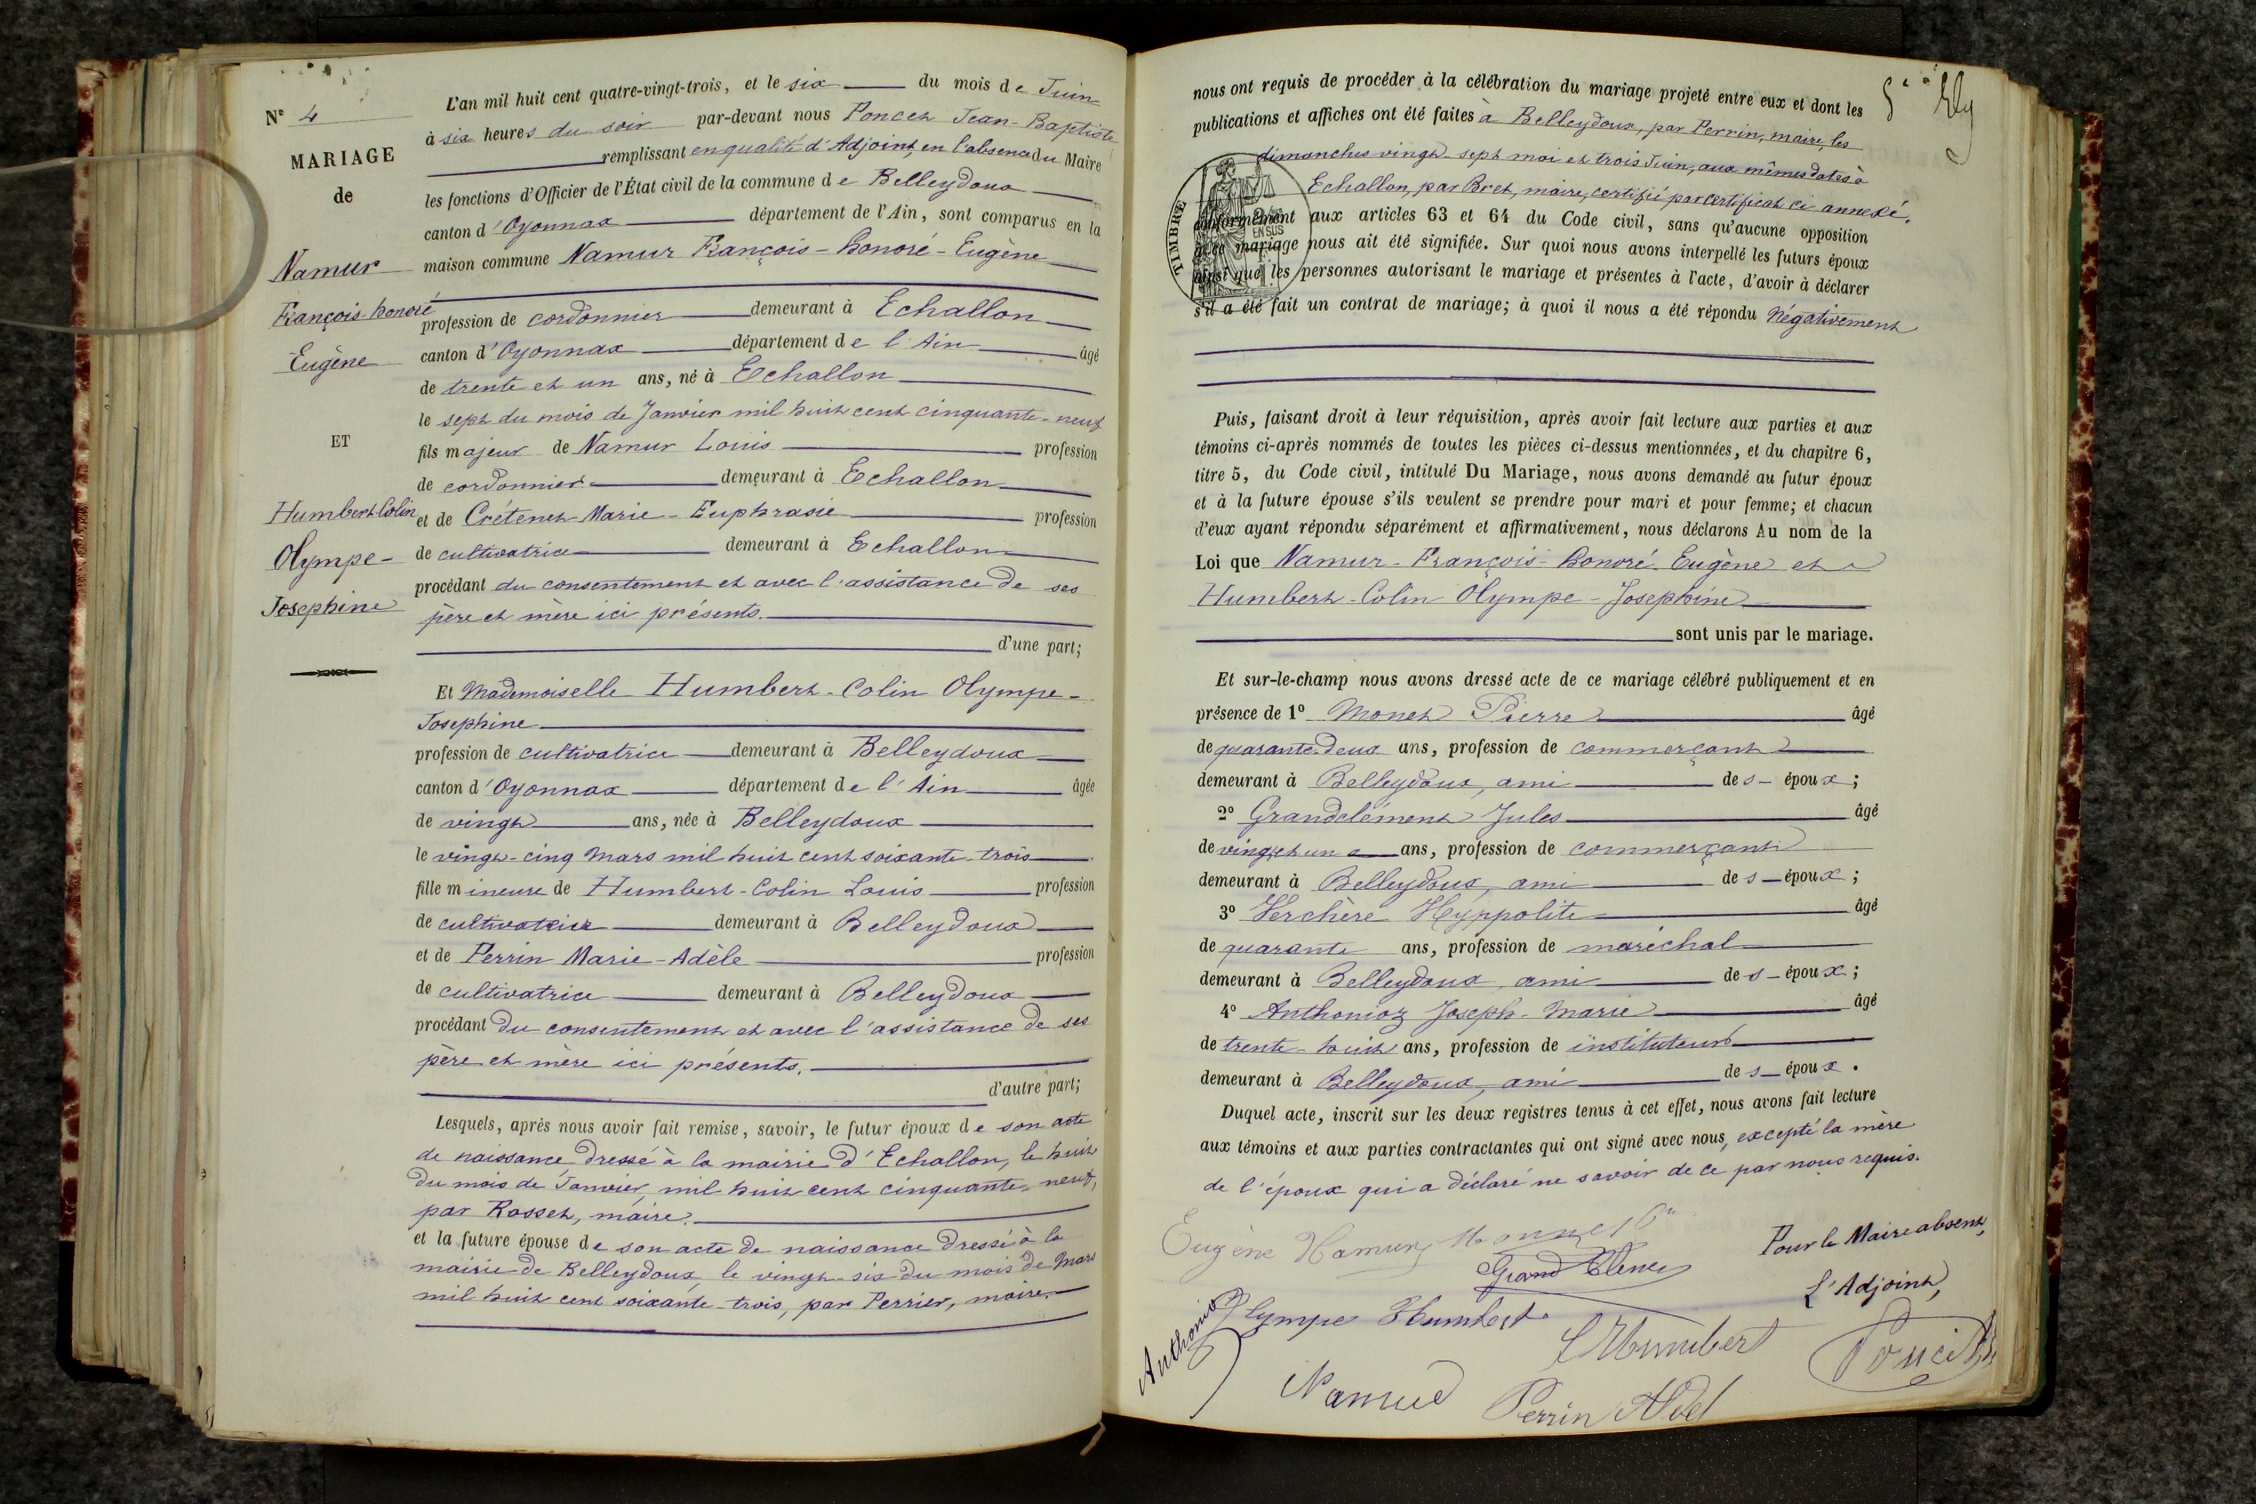 Nº 4
MARIAGE
de
Namur
François honoré
Eugène
ET
Humbert Colin
Olympe-
Josephine
L'an mil huit cent quatre-vingt-trois, et le six du mois de Juin
à six heures du soir par-devant nous Poncet Jean-Baptiste
remplissant en qualité d'Adjoint, en l'absence du Maire
les fonctions d'Officier de l'État civil de la commune de Belleydoux
canton d'Oyonnax département de l'Ain, sont comparus en la
maison commune Namur François-honoré-Eugène
profession de cordonnier demeurant à Echallon
canton d'Oyonnax département de l'Ain âgé
de trente et un ans, né à Echallon
le sept du mois de Janvier mil huit cent cinquante-neuf
fils majeur de Namur Louis profession
de cordonnier demeurant à Echallon
et de Crétenet Marie-Euphrasie profession
de cultivatrice demeurant à Echallon
procédant du consentement et avec l'assistance de ses
père et mère ici présents.
d'une part;
Et Mademoiselle Humbert-Colin Olympe-
Josephine
profession de cultivatrice demeurant à Belleydoux
canton d'Oyonnax département de l'Ain âgée
de vingt ans, née à Belleydoux
le vingt-cinq Mars mil huit cent soixante-trois
fille mineure de Humbert-Colin Louis profession
de cultivateur demeurant à Belleydoux
et de Perrin Marie-Adèle profession
de cultivatrice demeurant à Belleydoux
procédant du consentement et avec l'assistance de ses
père et mère ici présents.
d'autre part;
Lesquels, après nous avoir fait remise, savoir, le futur époux de son acte
de naissance dressé à la mairie d'Echallon, le huit
du mois de Janvier mil huit cent cinquante-neuf,
par Rosset, maire.
et la future épouse de son acte de naissance dressé à la
mairie de Belleydoux, le vingt-six du mois de Mars
mil huit cent soixante-trois, par Perrier, maire.
nous ont requis de procéder à la célébration du mariage projeté entre eux et dont les
publications et affiches ont été faites à Belleydoux, par Perrin, maire, les
dimanches vingt-sept mai et trois Juin, aux mêmes dates à
Echallon, par Bret, maire, certifié par certificat ci annexé.
TIMBRE
conformément aux articles 63 et 64 du Code civil, sans qu'aucune opposition
à ce mariage nous ait été signifiée. Sur quoi nous avons interpellé les futurs époux
ainsi que les personnes autorisant le mariage et présentes à l'acte, d'avoir à déclarer
s'il a été fait un contrat de mariage; à quoi il nous a été répondu Négativement
Puis, faisant droit à leur réquisition, après avoir fait lecture aux parties et aux
témoins ci-après nommés de toutes les pièces ci-dessus mentionnées, et du chapitre 6,
titre 5, du Code civil, intitulé Du Mariage, nous avons demandé au futur époux
et à la future épouse s'ils veulent se prendre pour mari et pour femme; et chacun
d'eux ayant répondu séparément et affirmativement, nous déclarons Au nom de la
Loi que Namur-François-honoré-Eugène et
Humbert-Colin Olympe-Josephine
sont unis par le mariage.
Et sur-le-champ nous avons dressé acte de ce mariage célébré publiquement et en
présence de 1º Monet Pierre âgé
de quarante deux ans, profession de commerçant
demeurant à Belleydoux, ami des époux;
2º Grandclément Jules âgé
de vingt et un ans, profession de commerçant
demeurant à Belleydoux, ami des époux;
3º Verchère Hyppolite âgé
de quarante ans, profession de maréchal
demeurant à Belleydoux, ami des époux;
4º Anthonioz Joseph-Marie âgé
de trente-huit ans, profession de instituteur
demeurant à Belleydoux, ami des époux.
Duquel acte, inscrit sur les deux registres tenus à cet effet, nous avons fait lecture
aux témoins et aux parties contractantes qui ont signé avec nous, excepté la mère
de l'époux qui a déclaré ne savoir de ce par nous requis.
Eugène Namur
Pour le Maire absent,
L'Adjoint,
Anthonioz
Olympe Humbert
Humbert
Poncet
Namur
Perrin Adèl